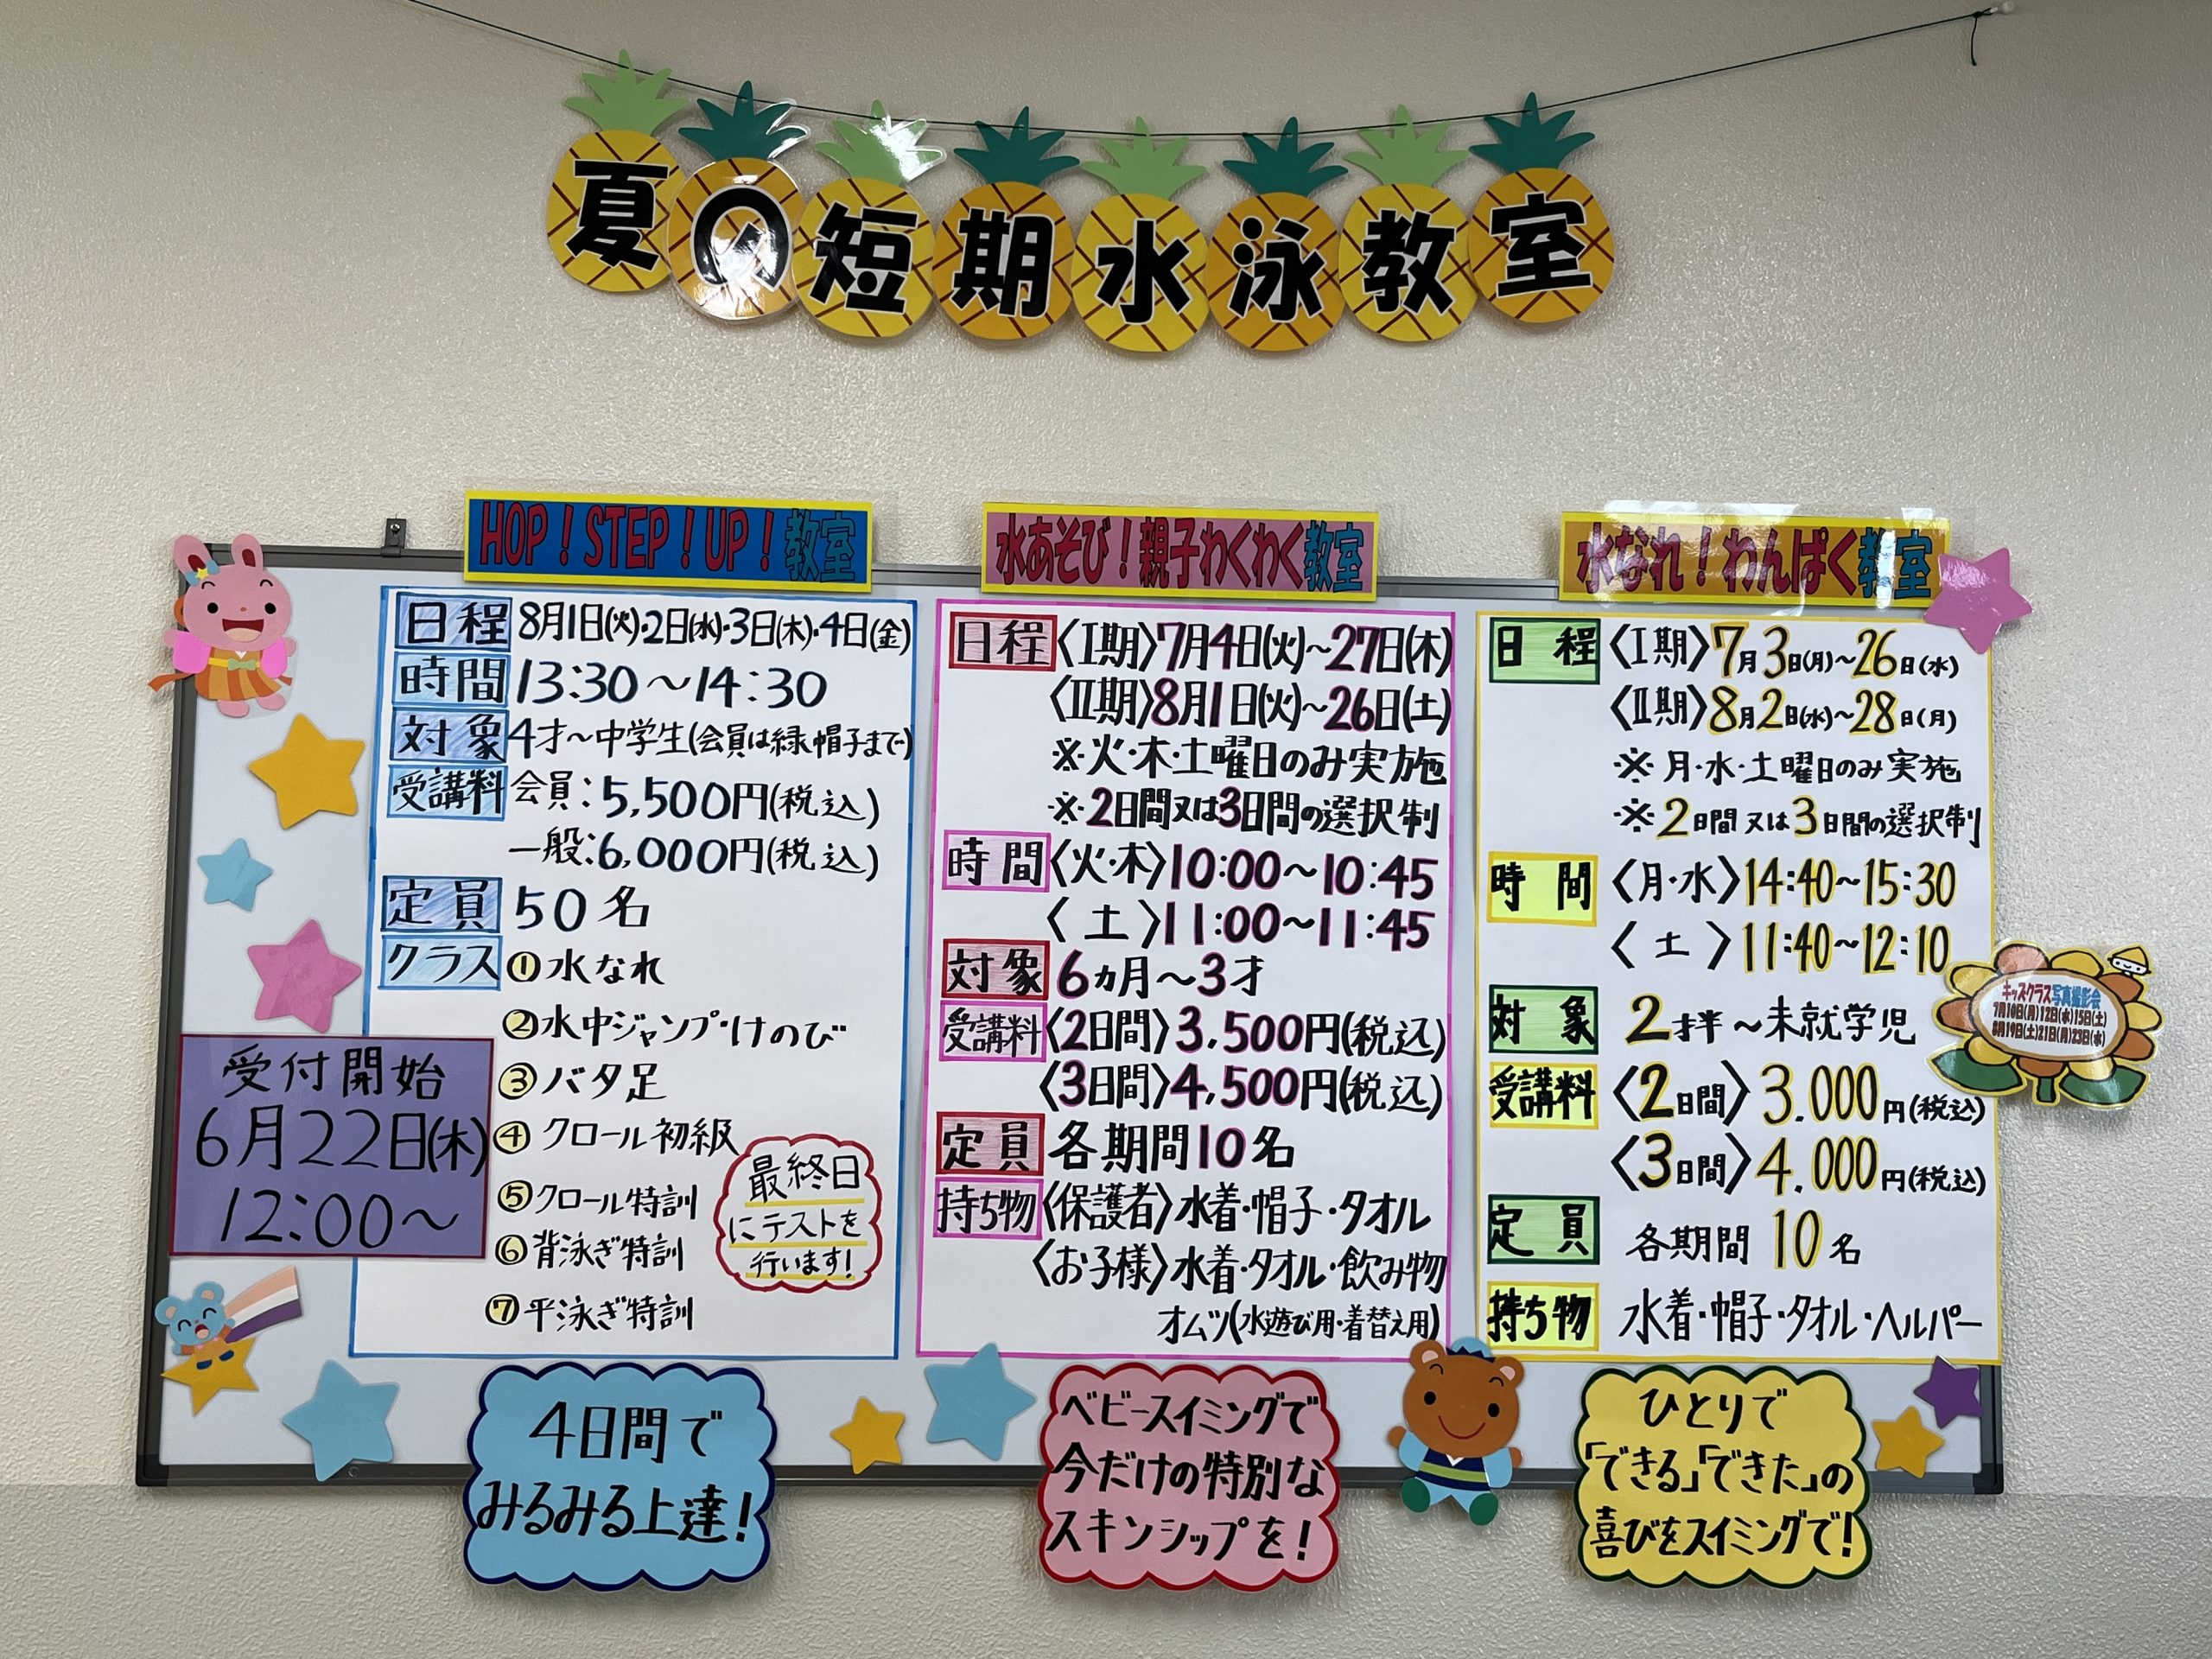 夏の短期水泳教室
HOP！STEP！UP！教室
日程 8月1日(火)・2日(水)・3日(木)・4日(金)
時間 13:30～14:30
対象 4才～中学生(会員は緑帽子まで)
受講料 会員：5,500円(税込)
一般：6,000円(税込)
定員 50名
クラス ①水なれ
②水中ジャンプ・けのび
③バタ足
④クロール初級
⑤クロール特訓
⑥背泳ぎ特訓
⑦平泳ぎ特訓
最終日
にテストを
行います！
受付開始
6月22日(木)
12:00～
4日間で
みるみる上達！
水あそび！親子わくわく教室
日程 〈Ⅰ期〉7月4日(火)～27日(木)
〈Ⅱ期〉8月1日(火)～26日(土)
※火・木・土曜日のみ実施
※2日間又は3日間の選択制
時間 〈火・木〉10:00～10:45
〈土〉11:00～11:45
対象 6ヵ月～3才
受講料 〈2日間〉3,500円(税込)
〈3日間〉4,500円(税込)
定員 各期間10名
持ち物 〈保護者〉水着・帽子・タオル
〈お子様〉水着・タオル・飲み物
オムツ(水遊び用・着替え用)
ベビースイミングで
今だけの特別な
スキンシップを！
水なれ！わんぱく教室
日程 〈Ⅰ期〉7月3日(月)～26日(水)
〈Ⅱ期〉8月2日(水)～28日(月)
※月・水・土曜日のみ実施
※2日間又は3日間の選択制
時間 〈月・水〉14:40～15:30
〈土〉11:40～12:10
対象 2才半～未就学児
受講料 〈2日間〉3.000円(税込)
〈3日間〉4.000円(税込)
定員 各期間10名
持ち物 水着・帽子・タオル・ヘルパー
ひとりで
「できる」「できた」の
喜びをスイミングで！
キッズクラス写真撮影会
7月10日(月)12日(水)15日(土)
8月19日(土)21日(月)23日(水)